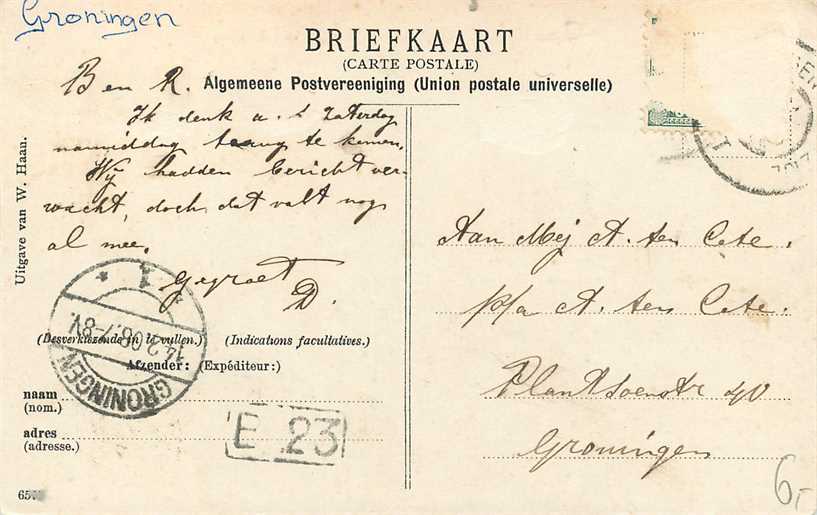 Groningen
BRIEFKAART
(CARTE POSTALE)
Algemeene Postvereeniging (Union postale universelle)
Ben R.
Ik denk a.s. Zaterdag
namiddag terug te komen.
Wij hadden bericht ver-
wacht, doch dat valt nog
al mee.
Gegroet
D.
Uitgave van W. Haan.
Aan Mej A. ten Cate.
p/a A. ten Cate.
Plantsoenstr 40
Groningen
(Desverkiezende in te vullen.) (Indications facultatives.)
Afzender: (Expéditeur:)
naam
(nom.)
adres
(adresse.)
GRONINGEN
14.2.06.7-8V.
1
E 23
6,-